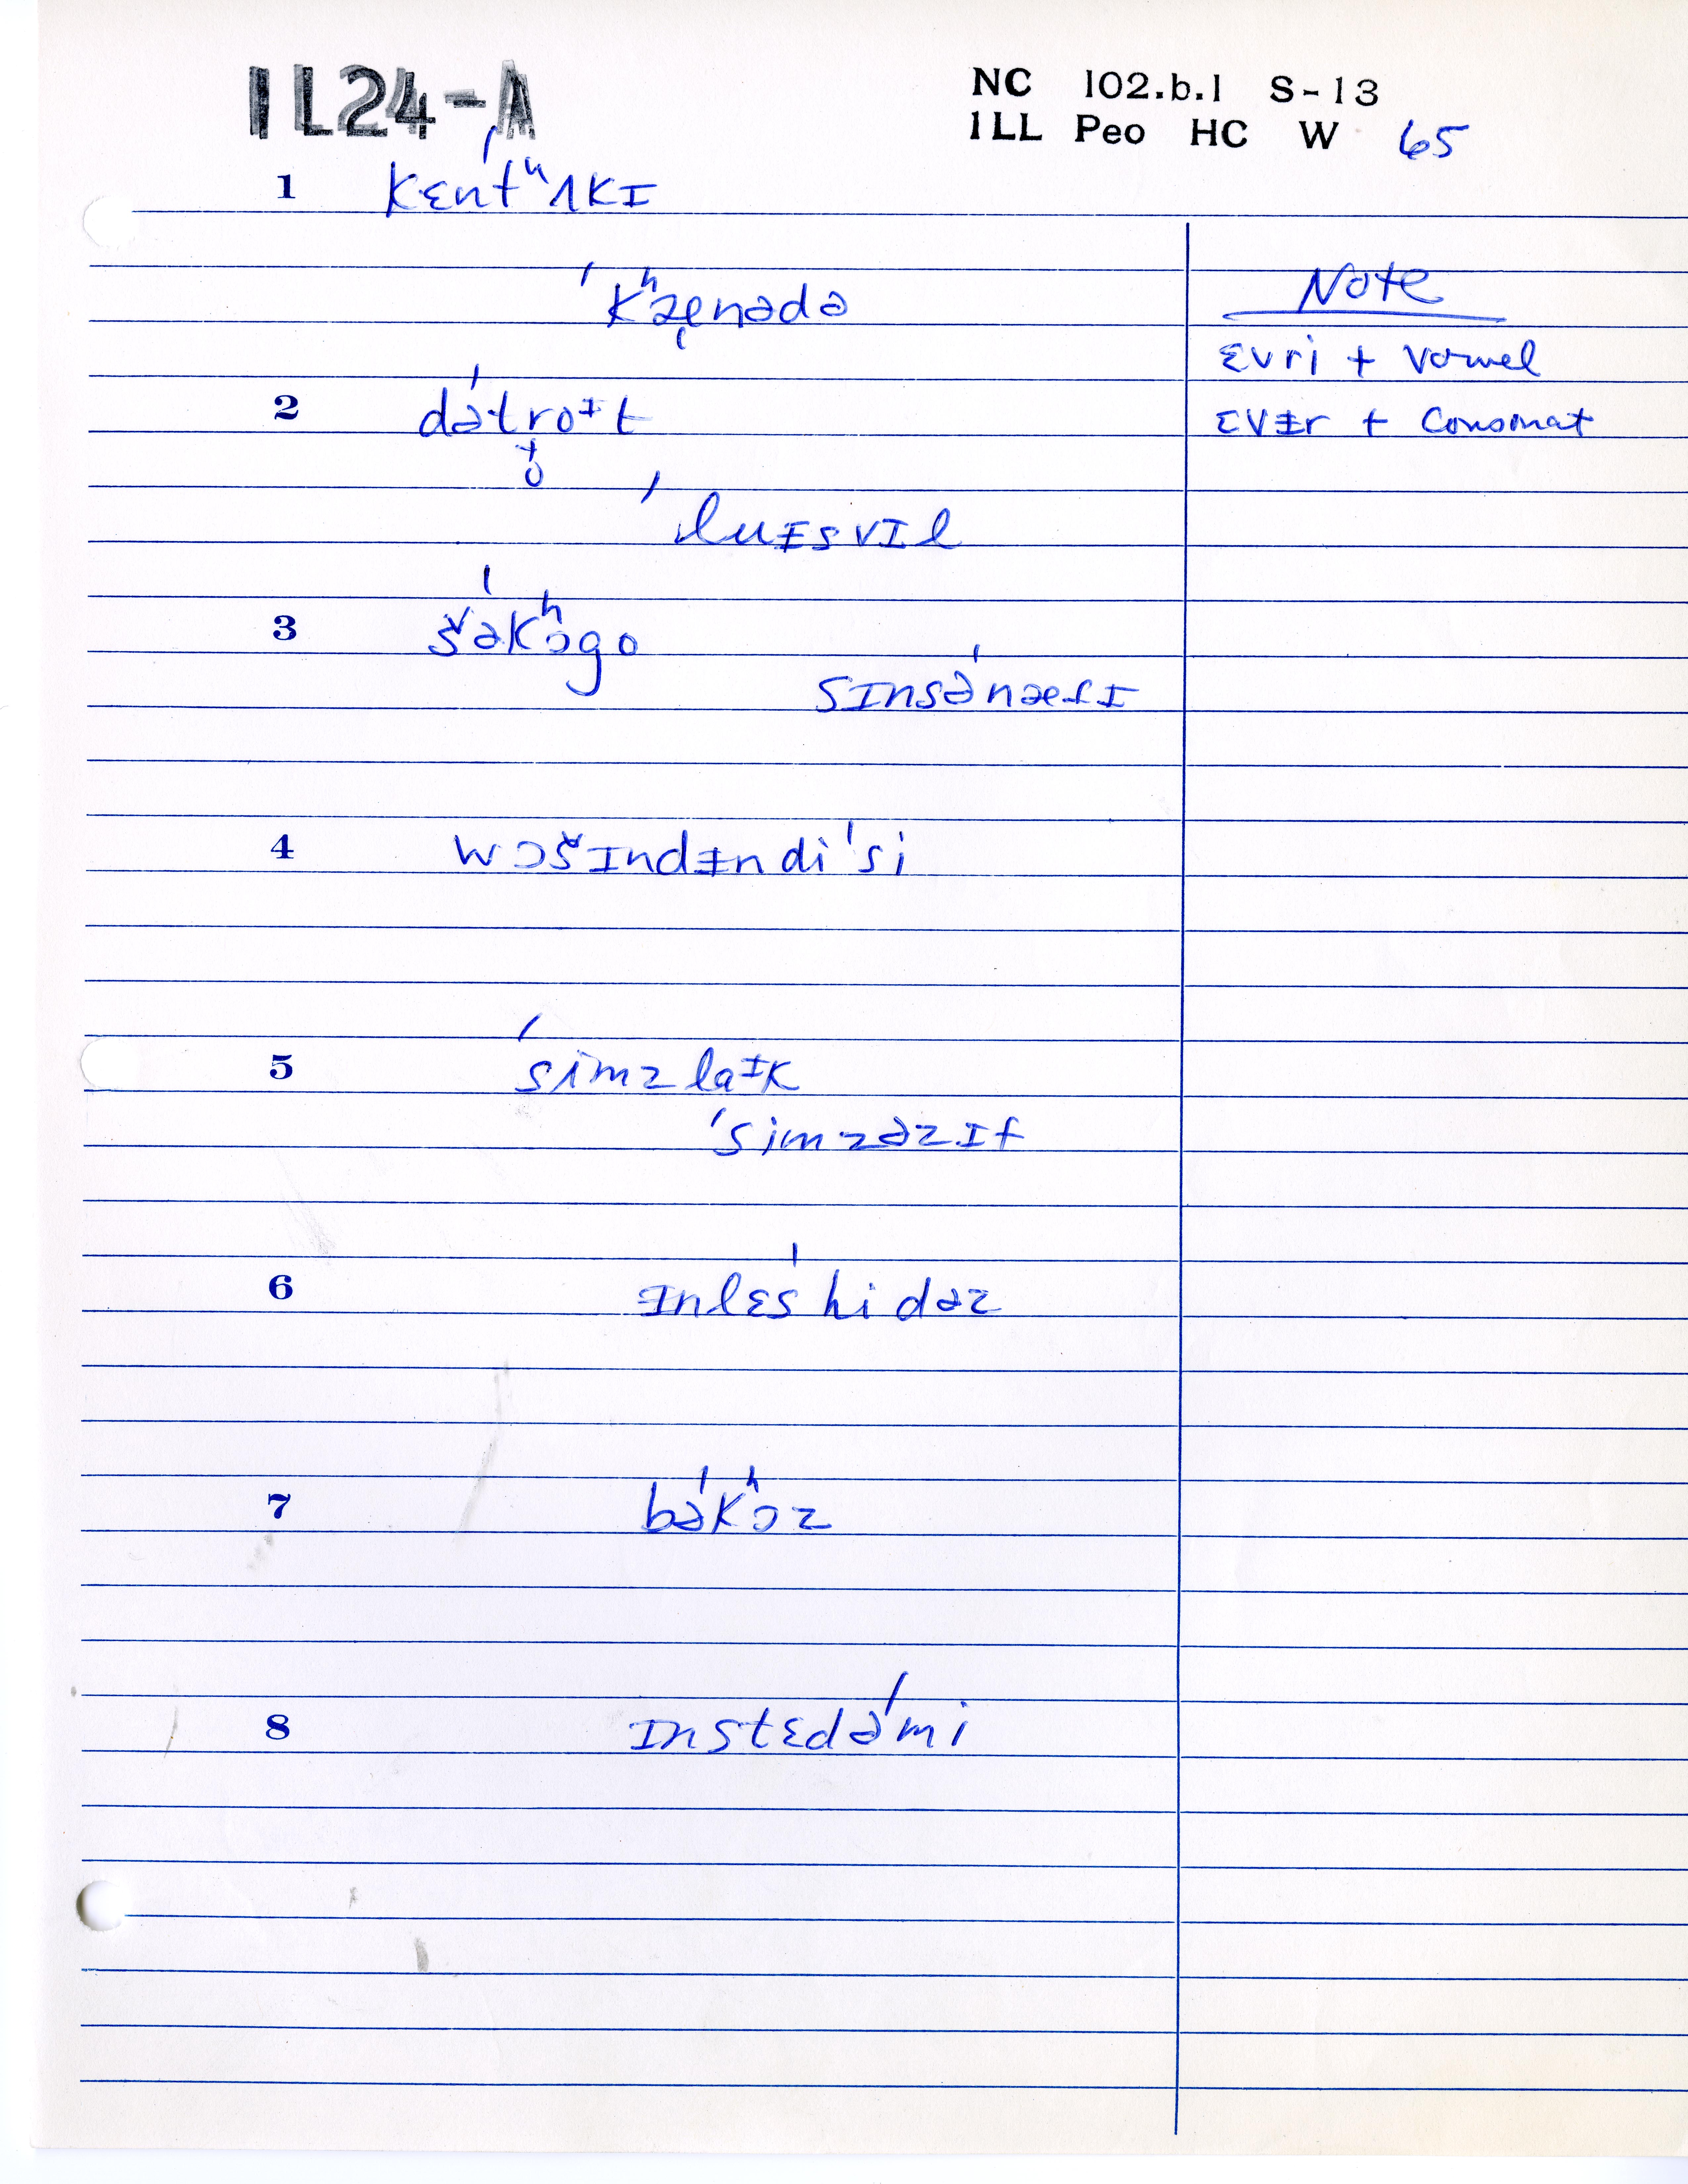 1L24-A
NC 102.b.1 S-13
1LL Peo HC W 65
1 kɛnˈtʰʌkɪ
ˈkʰæ̨nədə
2 dəˈtroᵻt
o
ˈluᵻsvɪl
3 šəˈkʰɔgo
sɪnsəˈnæɾɪ
4 wɔšɪndᵻn diˈsi
5 ˈsimz laᵻk
ˈsimzəzɪf
6 ᵻnˈlɛs hi dəz
7 bəˈkʰɔz
8 ɪnstɛdəˈmi
Note
ɛvri + vowel
ɛvᵻr + Consonat